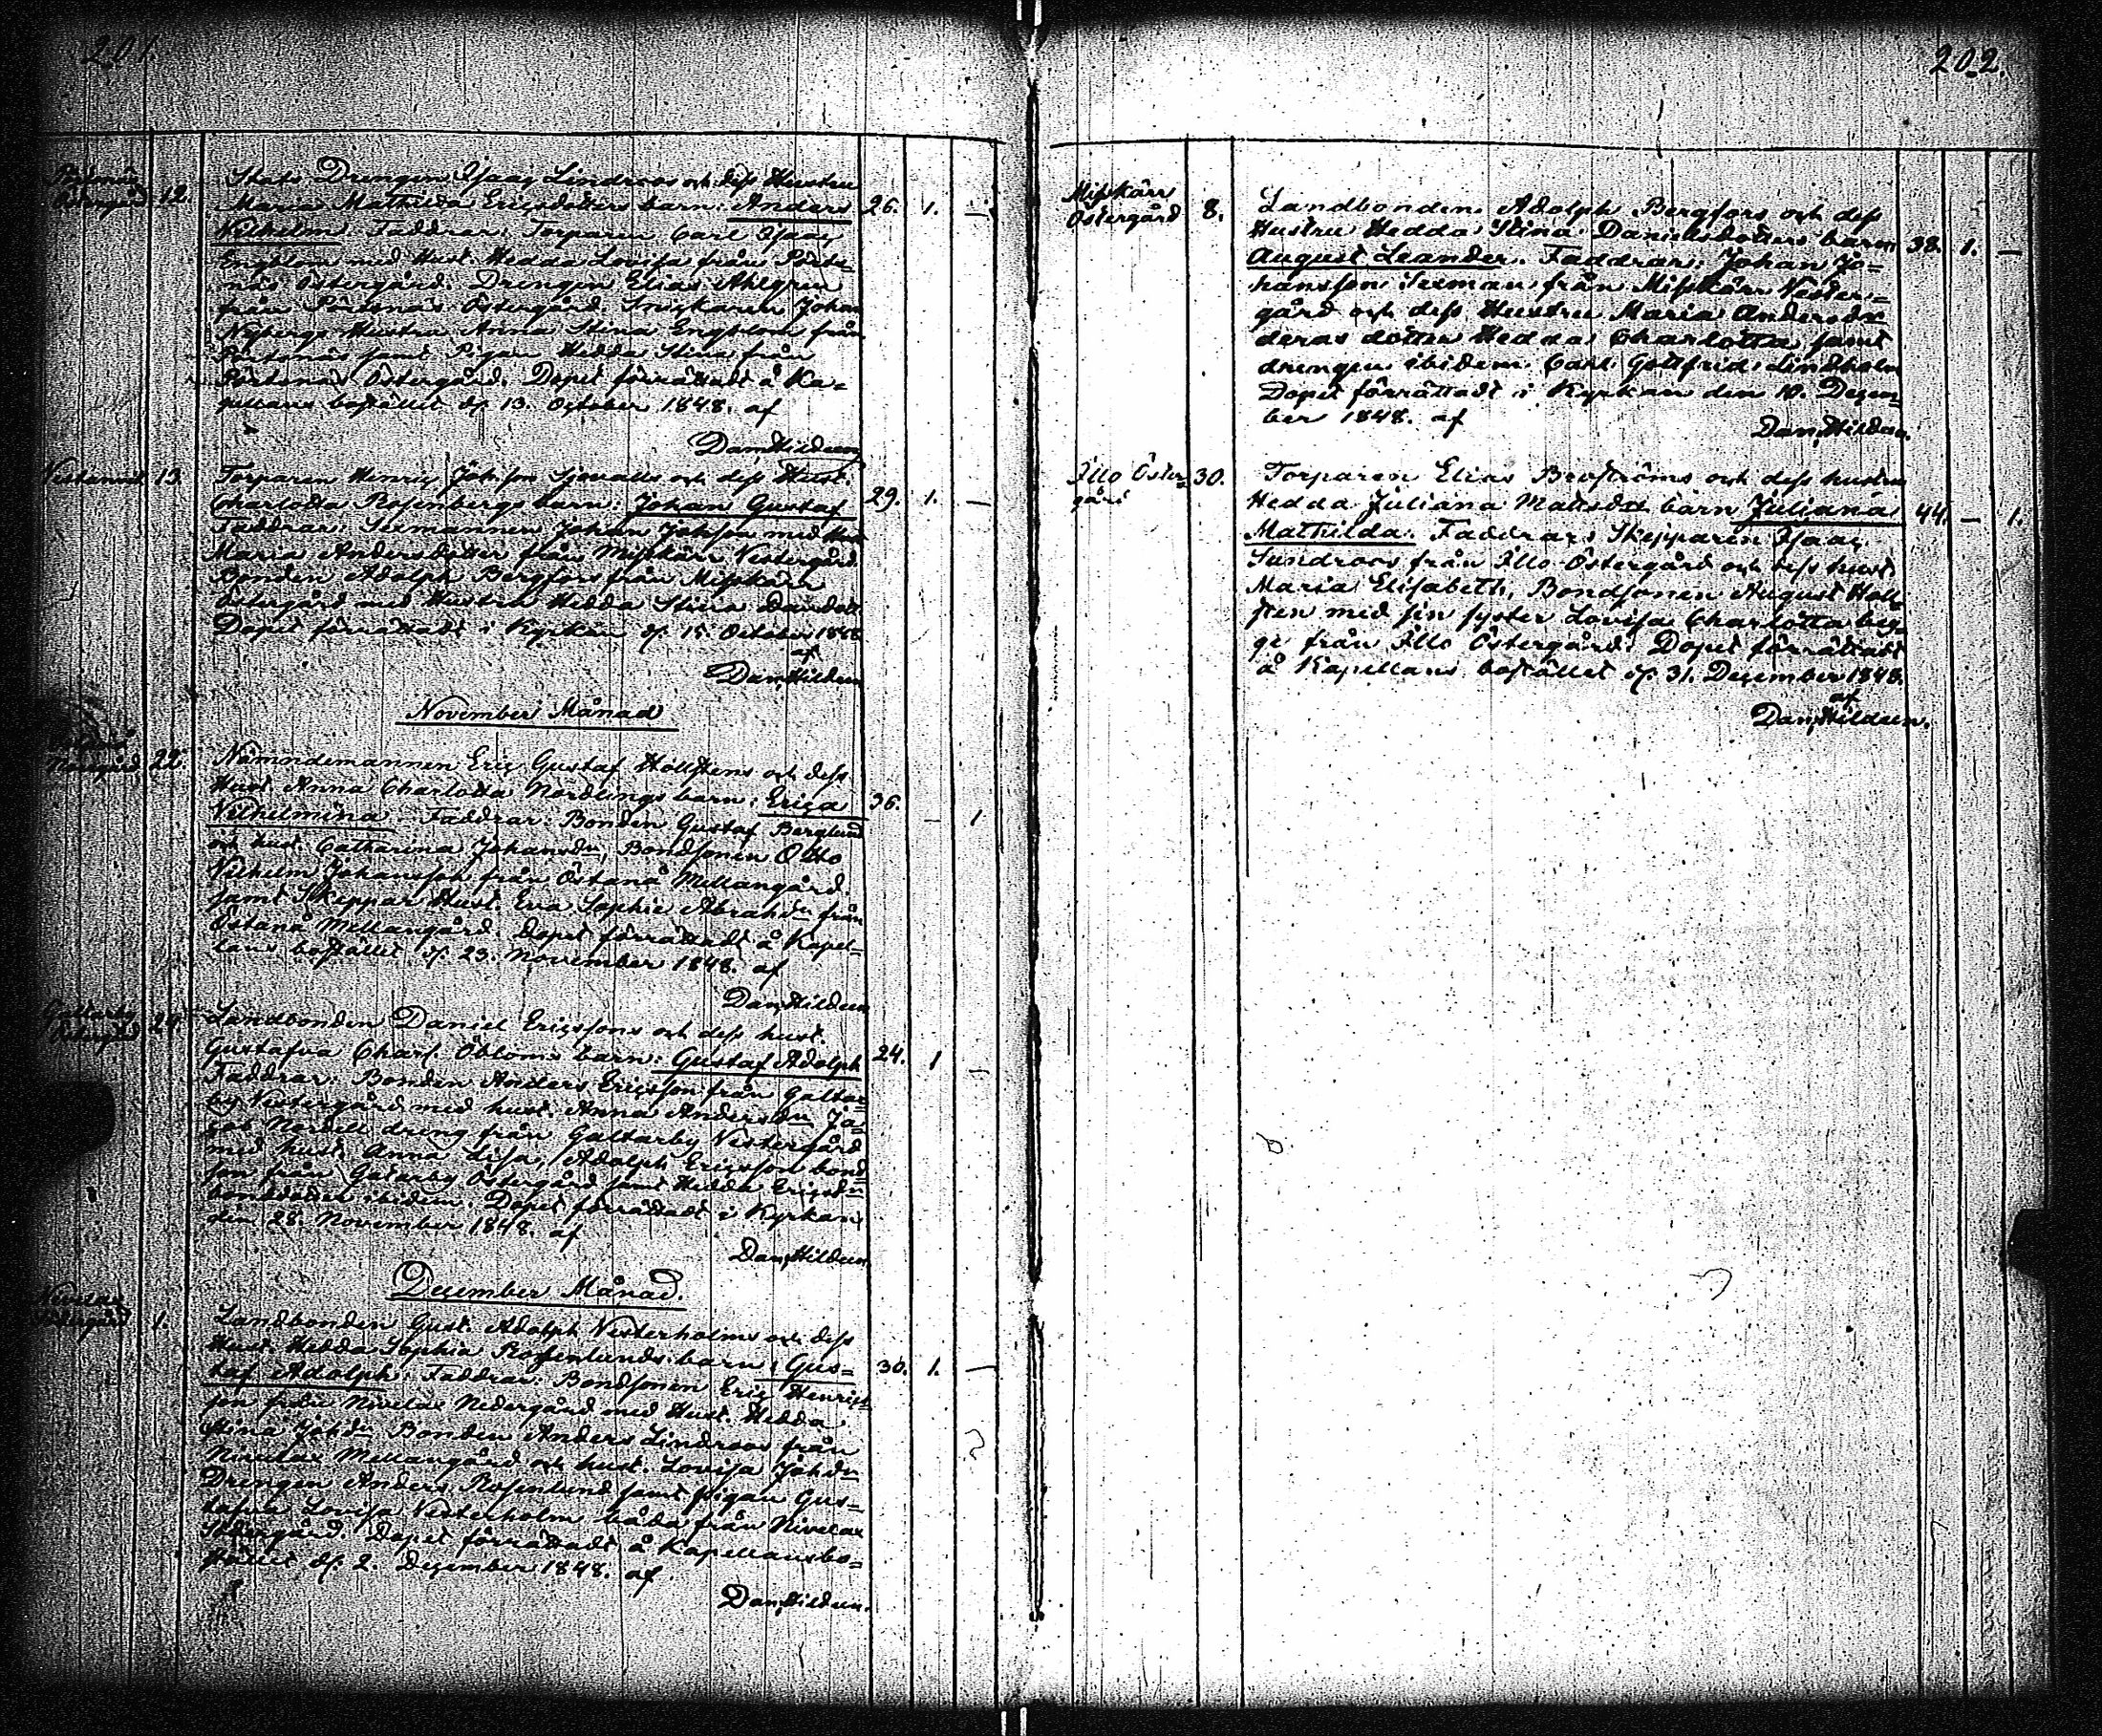 201.
Östergård 12. Stats Drengen Isaac Lindroos och dess Hustru
Maria Mathilda Ericsdotters barn: Anders 26. 1. —
Wilhelm. Faddrar: Torparen Carl Isaac
Engblom med Hust. Hedda Lovisa från Pörts-
näs Östergård. Drengen Elias Ahlgren
från Pörtsnäs Östergård. Snickaren Johan
Nybergs Hustru Anna Stina Engblom från
Pörtsnäs samt Pigan Hedda Stina från
Pörtsnäs Östergård. Dopet förrättadt å Ka-
pellans bostället d. 13. October 1848. af
Dan. Hildeen
13. Torparen Henric Johsson Sjövalls och dess Hust.
Charlotta Rosenbergs barn: Johan Gustaf 29. 1. —
Faddrar: Sexmannen Johan Johsson med Hust.
Maria Andersdotter från Misskärr Vestergård
Bonden Adolph Bergfors från Misskärr
Östergård med Hustru Hedda Stina Dansdott
Dopet förrättadt i Kyrkan d. 15. October 1848
af
Dan. Hildeen
November Månad
22. Nämndemannen Eric Gustaf Hollstens och dess
Hust. Anna Charlotta Nordlings barn: Erica 36. — 1
Vilhelmina. Faddrar: Bonden Gustaf Berglund
och hust. Catharina Johansdr, Bondsonen Otto
Vilhelm Johansson från Östanå Mellangård
samt Skeppar Hust. Eva Sophie Abrahdr från
Östanå Mellangård. Dopet förrättadt å Kapel-
lans bostället d. 23. November 1848. af
Dan. Hildeen
Galtarby
Östergård Landbonden Daniel Ericssons och dess hust.
Gustafva Charl. Öbloms barn: Gustaf Adolph 24. 1 —
Faddrar: Bonden Anders Ericsson från Galtar-
by Vestergård med hust. Anna Andersdr Ja-
cob Nordell dreng från Galtarby Vestergård
med hust. Anna Lisa, Adolph Ericsson bond
son från Galtarby Östergård samt Hedda Ericsdr
bonddotter ibidem. Dopet förrättadt i Kyrkan
den 28. November 1848. af
Dan. Hildeen
December Månad.
Nivelax
Södergård 1. Landbonden Gust. Adolph Vesterholms och dess
Hust. Hedda Sophia Rosenlunds barn: Gus- 30. 1. —
taf Adolph. Faddrar: Bondsonen Eric Henrics
son från Nivelax Nedergård med Hust. Hedda
Stina Johdr Bonden Anders Lindroos från
Nivelax Mellangård och hust. Lovisa Johdr
Drengen Anders Rosenlund samt pigan Gus-
tafva Lovisa Vesterholm båda från Nivelax
Södergård. Dopet förrättadt å Kapellansbo-
stället d. 2. December 1848. af
Dan. Hildeen.
202.
Misskärr
Östergård 8. Landbonden Adolph Bergfors och dess
Hustru Hedda Stina Danielsdotters barn 38. 1. —
August Leander. Faddrar: Johan Jo-
hansson Sexman från Misskärr Vester-
gård och dess Hustru Maria Andersdr
deras dotter Hedda Charlotta samt
drengen ibidem Carl Gottfrid Lindholm
Dopet förrättadt i Kyrkan den 10. Decem-
ber 1848. af
Dan. Hildeen.
Illo Öster-
gård 30. Torparen Elias Broströms och dess hustru
Hedda Juliana Matsdtr barn Juliana 44. — 1.
Mathilda. Faddrar: Skepparen Isaac
Sundroos från Illo Östergård och dess hust.
Maria Elisabeth, Bondsonen August Holl-
sten med sin syster Lovisa Charlotta beg-
ge från Illo Östergård. Dopet förrättadt
å Kapellans bostället d. 31. December 1848.
af
Dan. Hildeen.